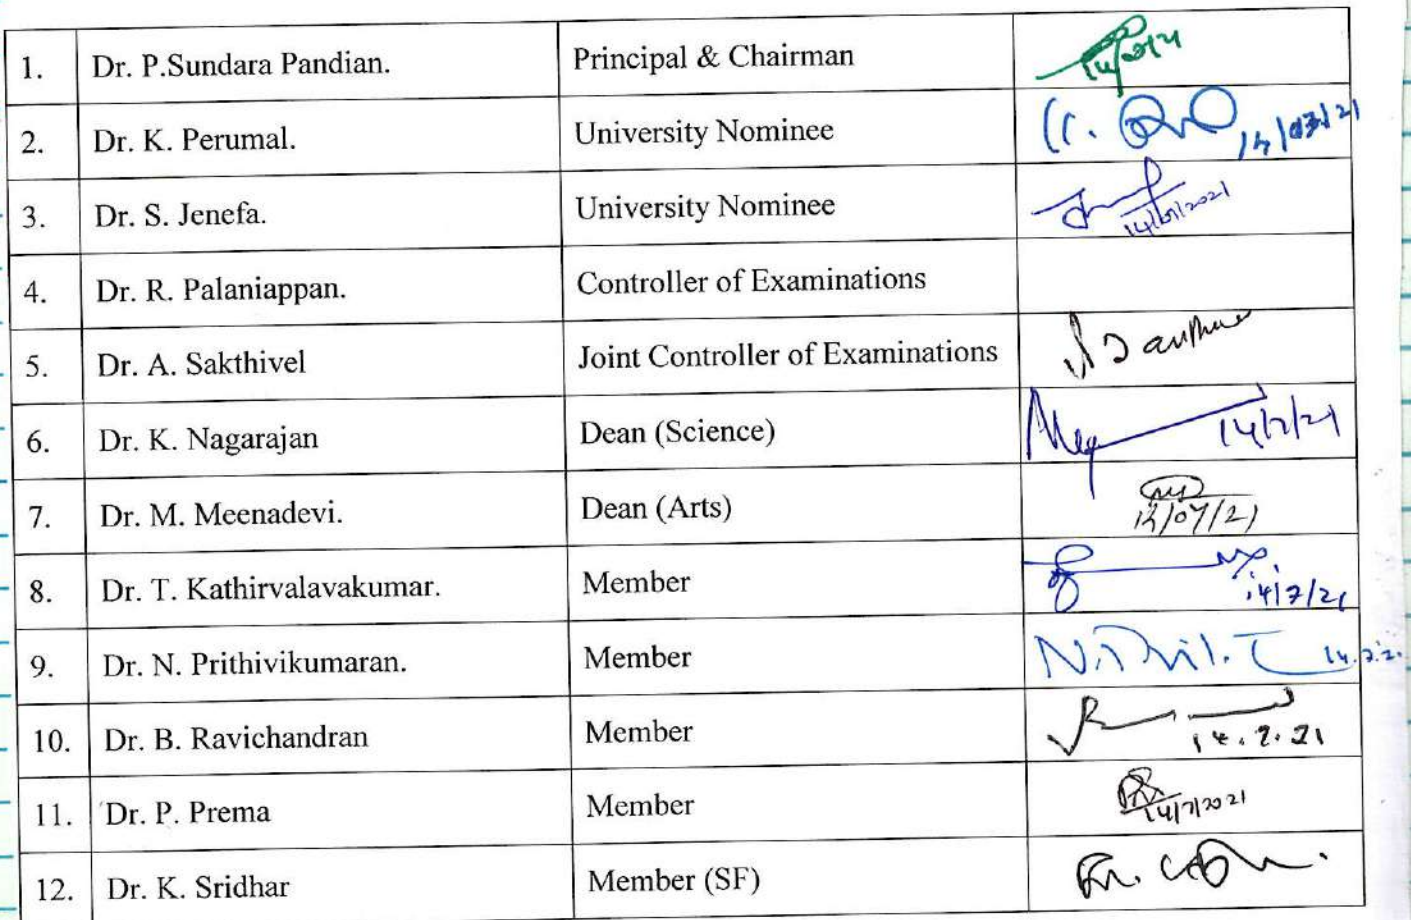 1. Dr. P.Sundara Pandian. Principal & Chairman
2. Dr. K. Perumal. University Nominee
3. Dr. S. Jenefa. University Nominee
4. Dr. R. Palaniappan. Controller of Examinations
5. Dr. A. Sakthivel Joint Controller of Examinations
6. Dr. K. Nagarajan Dean (Science) 14/7/21
7. Dr. M. Meenadevi. Dean (Arts)
8. Dr. T. Kathirvalavakumar. Member 14/7/21
9. Dr. N. Prithivikumaran. Member
10. Dr. B. Ravichandran Member 14.7.21
11. Dr. P. Prema Member 14/7/2021
12. Dr. K. Sridhar Member (SF)